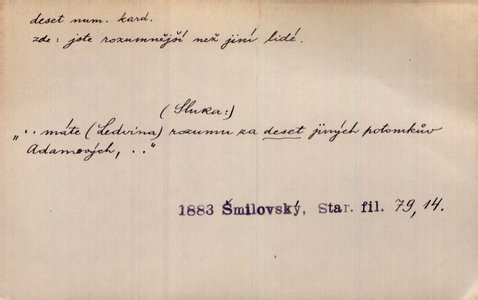 deset num. kard.
zde: jste rozumnější než jiní lidé.
(Sluka:)
„..máte (Ledvina) rozumu za deset jiných potomkův
Adamových, .."
1883 Šmilovský, Star. fil. 79, 14.